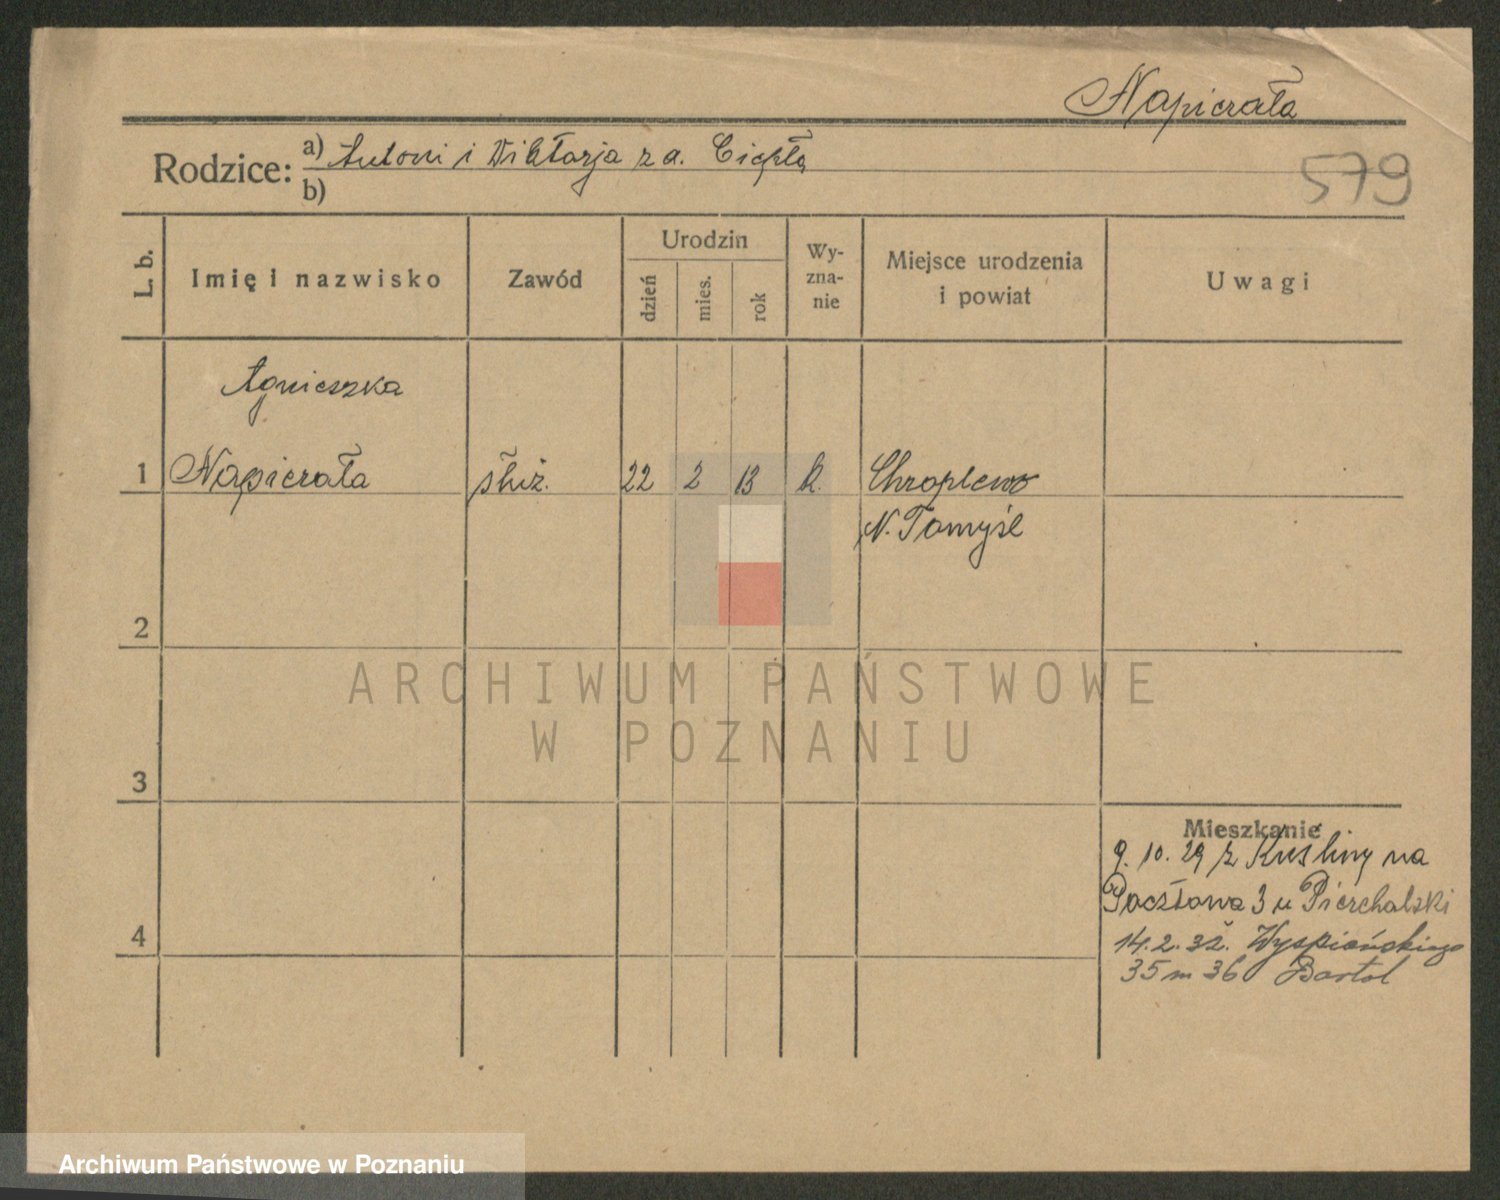 Napierała
Rodzice: a) Antoni i Wiktorja z d. Ciepła
b)
579
L. b. Imię i nazwisko Zawód Urodzin dzień mies. rok Wy-zna-nie Miejsce urodzenia i powiat Uwagi
Agnieszka
1 Napierała służ. 22 2 13 k. Chraplewo
N. Tomyśl
2
ARCHIWUM PAŃSTWOWE
W POZNANIU
3
Mieszkanie
9. 10. 29 z Kuśliny na
Pocztowa 3 u Pierchalski
4
14. 2. 32. Wyspiańskiego
35 m 36 Bartol
Archiwum Państwowe w Poznaniu